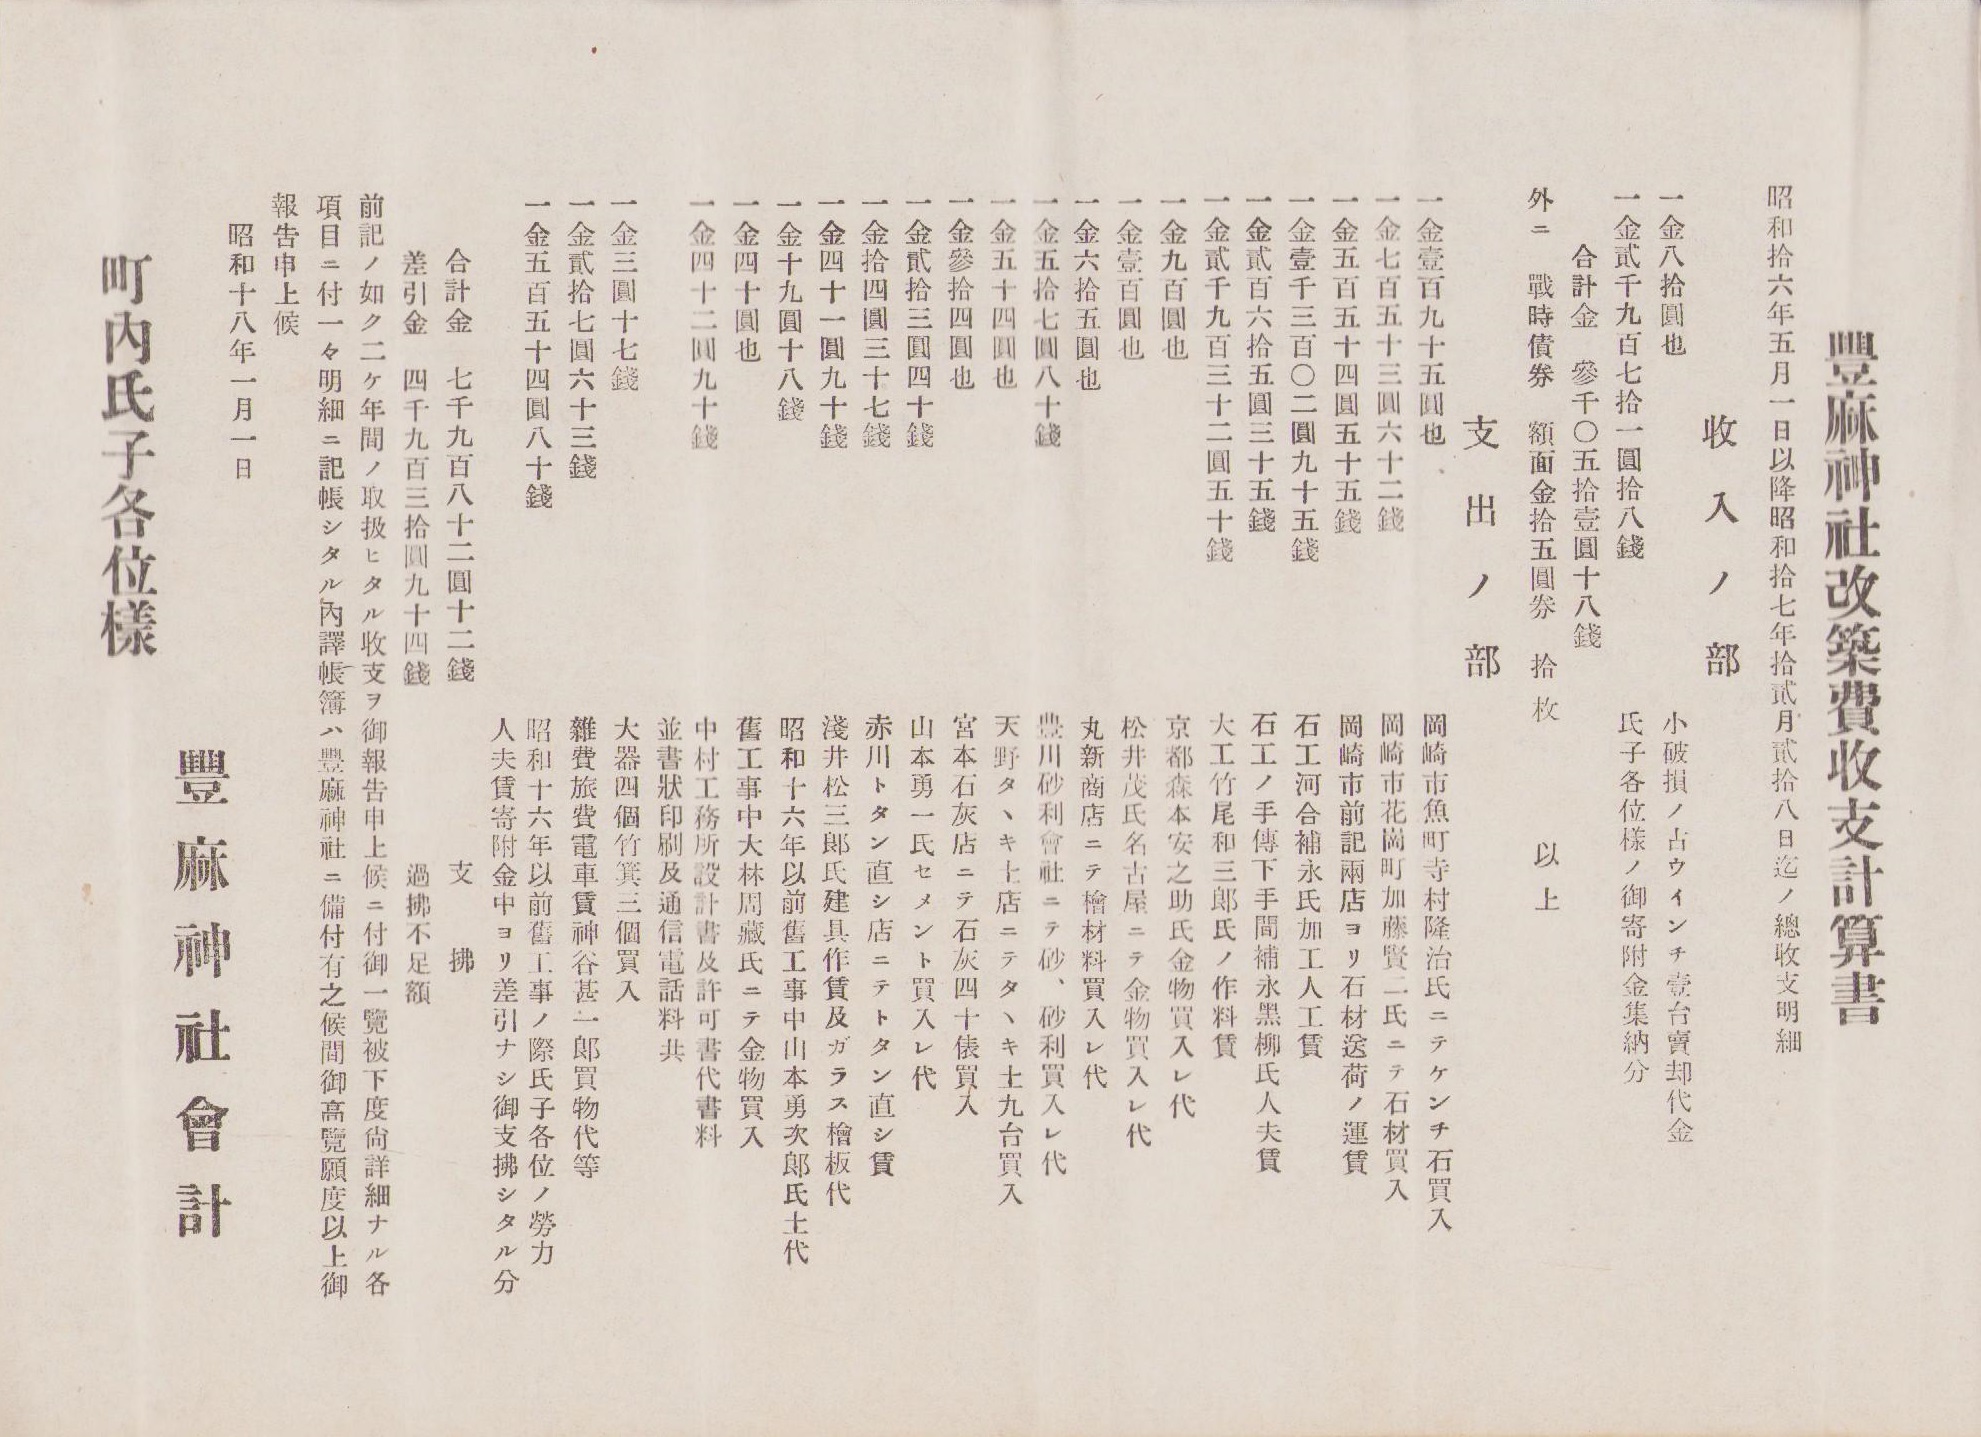 豐麻神社改築費收支計算書
昭和拾六年五月一日以降昭和拾七年拾貳月貳拾八日迄ノ總收支明細
收入ノ部
一金八拾圓也 小破損ノ占ウインチ壹台賣却代金
一金貳千九百七拾一圓拾八錢 氏子各位樣ノ御寄附金集納分
合計金 參千〇五拾壹圓十八錢
外ニ 戰時債券 額面金拾五圓券 拾枚 以上
支出ノ部
一金壹百九十五圓也 岡崎市魚町寺村隆治氏ニテケンチ石買入
一金七百五十三圓六十二錢 岡崎市花崗町加藤賢一氏ニテ石材買入
一金五百五十四圓五十五錢 岡崎市前記兩店ヨリ石材送荷ノ運賃
一金壹千三百〇二圓九十五錢 石工河合補永氏加工人工賃
一金貳百六拾五圓三十五錢 石工ノ手傳下手間補永黑柳氏人夫賃
一金貳千九百三十二圓五十錢 大工竹尾和三郎氏ノ作料賃
一金九百圓也 京都森本安之助氏金物買入レ代
一金壹百圓也 松井茂氏名古屋ニテ金物買入レ代
一金六拾五圓也 丸新商店ニテ檜材料買入レ代
一金五拾七圓八十錢 豊川砂利會社ニテ砂、砂利買入レ代
一金五十四圓也 天野タヽキ土店ニテタヽキ土九台買入
一金參拾四圓也 宮本石灰店ニテ石灰四十俵買入
一金貳拾三圓四十錢 山本勇一氏セメント買入レ代
一金拾四圓三十七錢 赤川トタン直シ店ニテトタン直シ賃
一金四十一圓九十錢 淺井松三郎氏建具作賃及ガラス檜板代
一金十九圓十八錢 昭和十六年以前舊工事中山本勇次郎氏土代
一金四十圓也 舊工事中大林周藏氏ニテ金物買入
一金四十二圓九十錢 中村工務所設計書及許可書代書料
並書狀印刷及通信電話料共
一金三圓十七錢 大器四個竹箕三個買入
一金貳拾七圓六十三錢 雜費旅費電車賃神谷甚一郎買物代等
一金五百五十四圓八十錢 昭和十六年以前舊工事ノ際氏子各位ノ勞力
人夫賃寄附金中ヨリ差引ナシ御支拂シタル分
合計金 七千九百八十二圓十二錢 支拂
差引金 四千九百三拾圓九十四錢 過拂不足額
前記ノ如ク二ケ年間ノ取扱ヒタル收支ヲ御報告申上候ニ付御一覽被下度尙詳細ナル各
項目ニ付一々明細ニ記帳シタル內譯帳簿ハ豐麻神社ニ備付有之候間御高覽願度以上御
報告申上候
昭和十八年一月一日
豐麻神社會計
町內氏子各位樣